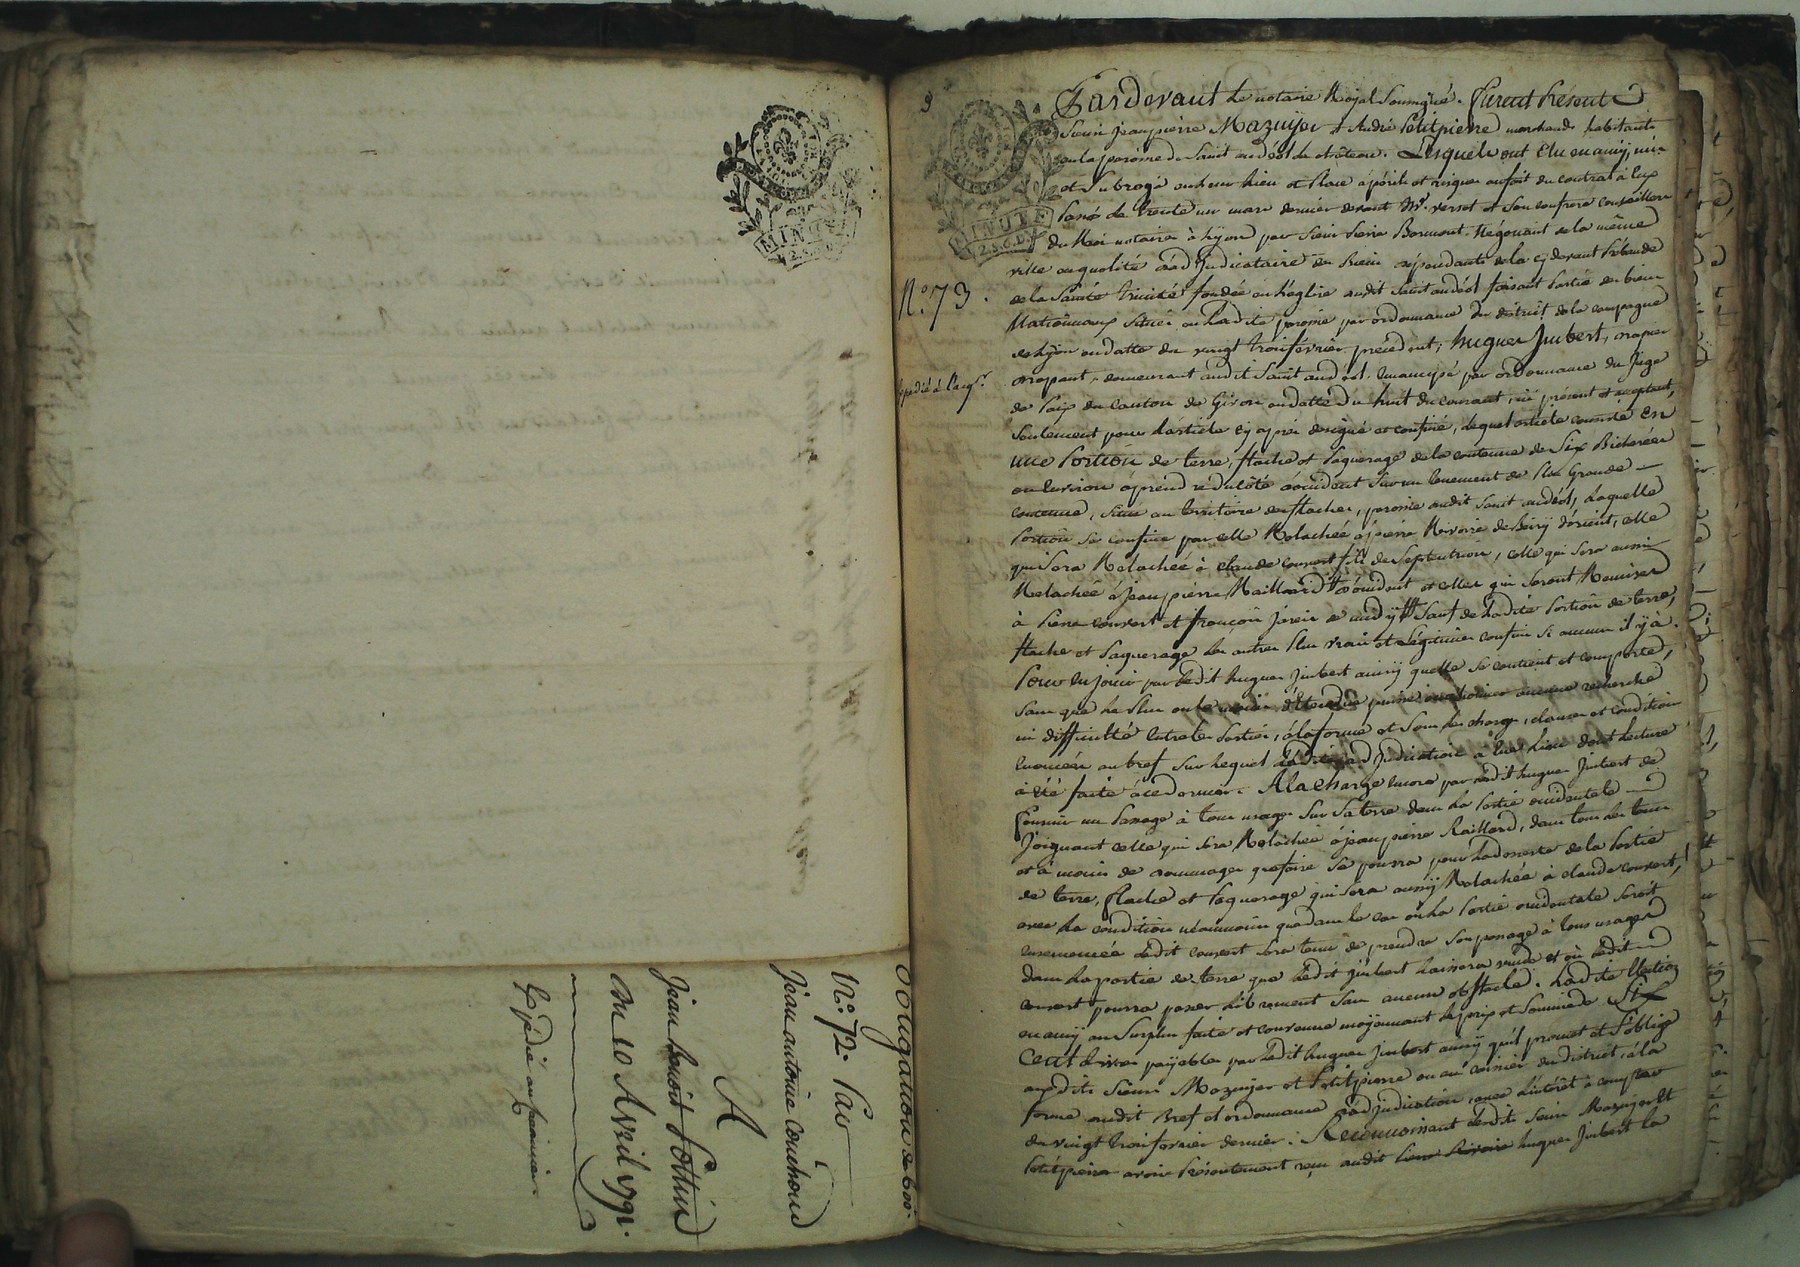 MINUTE
Obligation de 600
N.° 72. Par
Jean antoine Couchoud
A
Jean benoit Pottin
Du 10 Avril 1791.
Expédié au créancier
MINUTE
2. S. 6. D.
N.° 73.
Expédié à l'acq.r
Pardevant le notaire Royal Soussigné. furent Présents
Sieurs jean pierre Mazuyer & André Petitpierre marchands habitants
en la paroisse de Saint andéol le château. Lesquels ont Elu en amy, mis
et Subrogé en leur lieu et Place à périls et risques au fait du contrat à eux
Passé le trente un mars dernier devant M.e verset et Son confrere conseillers
du Roi notaires à Lyon par Sieur Pierre Bormont Negociant de la même
ville en qualité d'adjudicataire des biens dépendants de la cy devant Prébende
de la Sainte trinité fondée en l'église dudit Saint andéol faisant Partie des biens
Nationnaux Situés en ladite paroisse par ordonnance du district de la campagne
de Lyon en datte du vingt trois février précédent, hugues Jmbert,
demeurant audit Saint andéol émancipé par ordonnance du Juge
de Paix du canton de Givors en datte du huit du courant, ici présent et acceptant,
Seulement pour l'article cy après désigné et confiné, lequel article consiste En
une Portion de terre, flache et Paquerage de la contenue de Six Bicherées
environ à prendre du côté d'occident Sur un tenement de Plus Grande
contenue, Situé au territoire des flaches, paroisse dudit Saint andéol, laquelle
Portion Se confine par celle Relachée à pierre Rivoire de Boiry d'orient, celle
qui Sera Relachée à claude couvert fils du Septentrion, celle qui Sera aussi
Relachée à jean pierre Raillard d'occident et celles qui Seront Remises
à Pierre couvert et françois de midy Sauf de ladite Portion de terre,
flache et Paquerage les autres Plus vrais et Légitimes confins Si aucuns il y a.
Pour en jouir par ledit hugues Jmbert ainsy quelle Se contient et comporte,
Sans que le Plus ou le moins d'étendue puisse occasionner aucune recherche
ni difficulté entre les Parties, à la forme et Sous les charges, clauses et conditions
énoncées au bref Sur lequel ladite adjudication a eu lieu dont lecture
a été faite à ce dernier. A la charge encore par ledit hugues Jmbert de
fournir un Passage à tous usages Sur Sa terre dans la Partie occidentale
Joignant celle qui Sera Relachée à jean pierre Raillard, dans tous les tems
et à moins de dommages que faire Se pourra pour la desserte de la Partie
de terre, flache et Paquerage qui Sera aussy Relachée à claude couvert,
avec la condition néanmoins que dans le cas où la Partie occidentale Seroit
ensemencée ledit couvert Sera tenu de prendre Son passage à tous usages
dans la partie de terre que ledit Jmbert laissera vuide et où ledit
couvert pourra passer librement Sans aucun obstacle. Ladite Election
en amy au Surplus faite et convenue moyennant le prix et Somme de Six
Cent Livres payables par ledit hugues Jmbert ainsy qu'il promet et S'oblige
auxdits Sieurs Mazuyer et Petitpierre ou en caisse du district, à la
forme dudit Bref et ordonnance d'adjudication, avec L'intérêt à compter
du vingt trois février dernier. Reconnoissant lesdits Sieurs Mazuyer et
Petitpierre avoir Présentement reçu dudit hugues Jmbert la